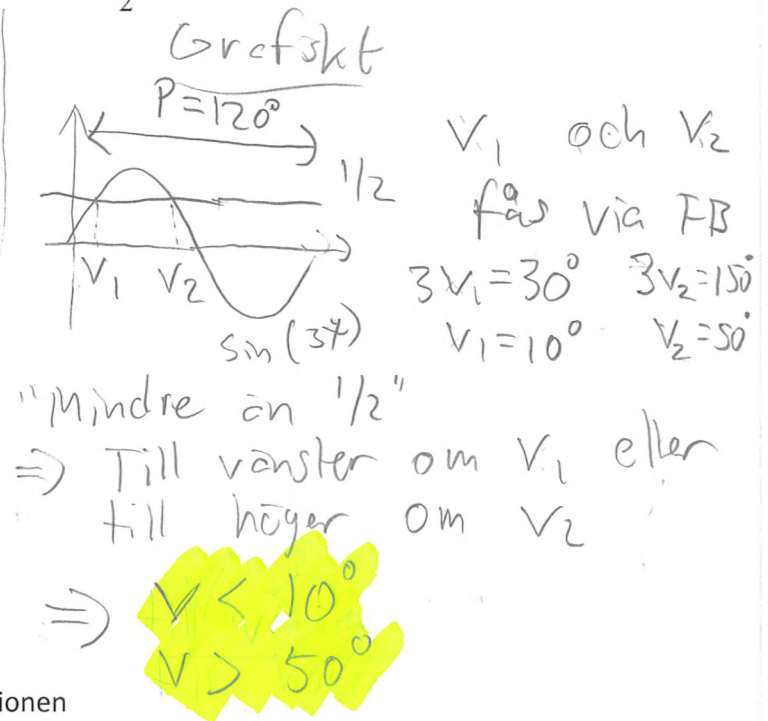 2
Grafiskt
P=120°
1/2
V₁ V₂
sin(3x)
V₁ och V₂
fås via FB
3V₁=30° 3V₂=150°
V₁=10° V₂=50°
"Mindre än 1/2"
⇒ Till vänster om V₁ eller
till höger om V₂
⇒ V < 10°
V > 50°
ionen